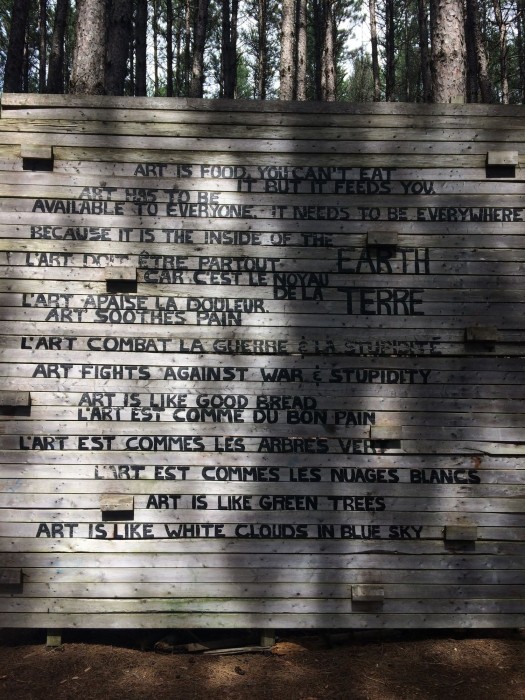 ART IS FOOD, YOU CAN'T EAT
IT BUT IT FEEDS YOU.
ART HAS TO BE
AVAILABLE TO EVERYONE. IT NEEDS TO BE EVERYWHERE
BECAUSE IT IS THE INSIDE OF THE
EARTH
L'ART DOIT ÊTRE PARTOUT
CAR C'EST LE NOYAU
DE LA TERRE
L'ART APAISE LA DOULEUR.
ART SOOTHES PAIN
L'ART COMBAT LA GUERRE & LA STUPIDITÉ
ART FIGHTS AGAINST WAR & STUPIDITY
ART IS LIKE GOOD BREAD
L'ART EST COMME DU BON PAIN
L'ART EST COMMES LES ARBRES VERT
L'ART EST COMMES LES NUAGES BLANCS
ART IS LIKE GREEN TREES
ART IS LIKE WHITE CLOUDS IN BLUE SKY